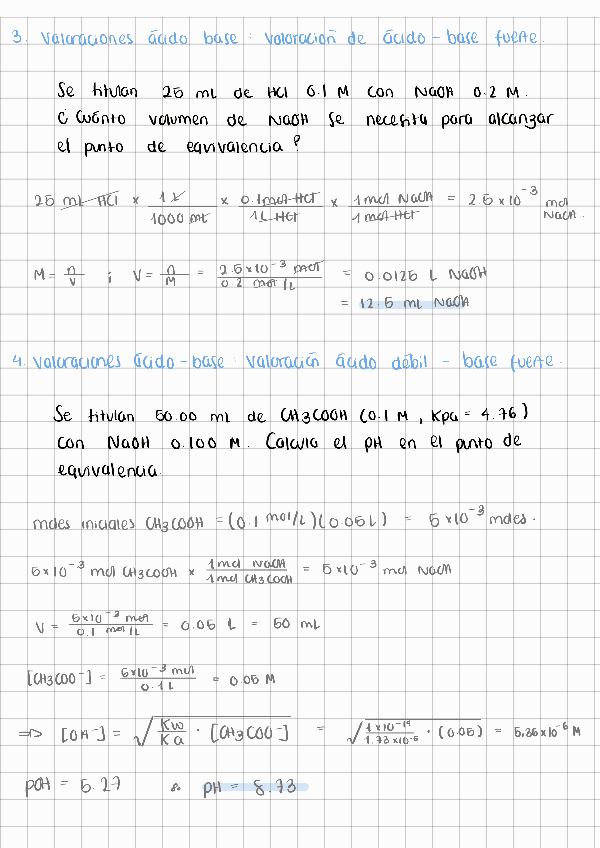 3. Valoraciones ácido base: Valoración de ácido-base fuerte.
Se titulan 25 mL de HCl 0.1 M con NaOH 0.2 M.
¿Cuánto volumen de NaOH se necesita para alcanzar
el punto de equivalencia?
25 mL HCl × 1 L / 1000 mL × 0.1 mol HCl / 1 L HCl × 1 mol NaOH / 1 mol HCl = 2.5×10⁻³ mol NaOH.
M = n/V ; V = n/M = 2.5×10⁻³ mol / 0.2 mol/L = 0.0125 L NaOH
= 12.5 mL NaOH
4. Valoraciones ácido-base: Valoración ácido débil - base fuerte.
Se titulan 50.00 mL de CH3COOH (0.1 M, Kpa = 4.76)
con NaOH 0.100 M. Calcula el pH en el punto de
equivalencia.
moles iniciales CH3COOH = (0.1 mol/L)(0.05 L) = 5×10⁻³ moles.
5×10⁻³ mol CH3COOH × 1 mol NaOH / 1 mol CH3COOH = 5×10⁻³ mol NaOH
V = 5×10⁻³ mol / 0.1 mol/L = 0.05 L = 50 mL
[CH3COO⁻] = 5×10⁻³ mol / 0.1 L = 0.05 M
=> [OH⁻] = √(Kw/Ka · [CH3COO⁻]) = √(1×10⁻¹⁴ / 1.73×10⁻⁵ · (0.05)) = 5.36×10⁻⁶ M
pOH = 5.27 ∴ pH = 8.73